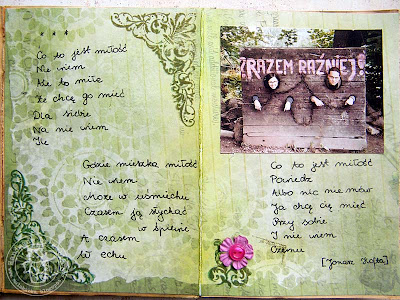 * * *
Co to jest miłość
Nie wiem
Ale to miłe
Że chcę go mieć
Dla siebie
Na nie wiem
Ile
Gdzie mieszka miłość
Nie wiem
Może w uśmiechu
Czasem ją słychać
w śpiewie
A czasem
W echu
RAZEM RAŹNIEJ!
Co to jest miłość
Powiedz
Albo nic nie mów
Ja chcę cię mieć
Przy sobie
I nie wiem
Czemu
[Jonasz Kofta]